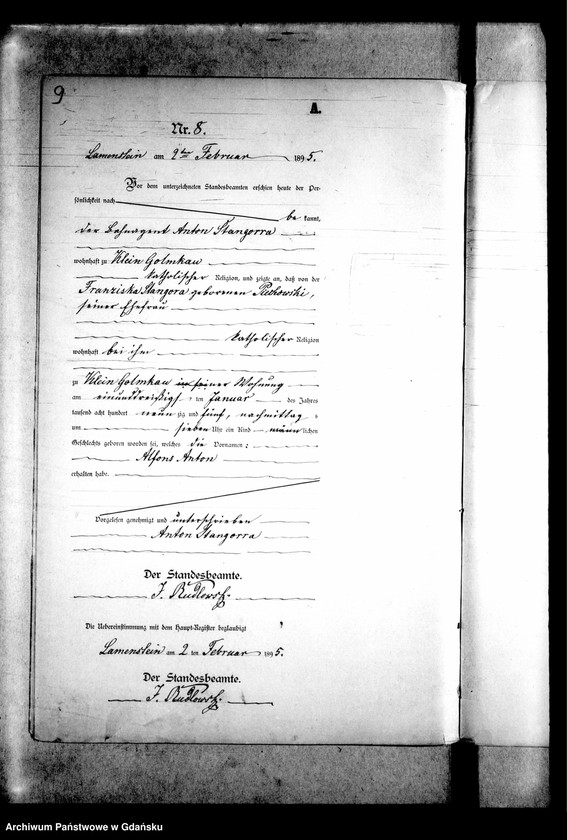 9
A.
Nr. 8.
Lamenstein am 2ten Februar 1895.
Vor dem unterzeichneten Standesbeamten erschien heute der Per-
sönlichkeit nach
be kannt,
der Bahnagent Anton Stangorra
wohnhaft zu Klein Golmkau
katholischer Religion, und zeigte an, daß von der
Franziska Stangora geborenen,
seiner Ehefrau
katholischer Religion
wohnhaft bei ihm
zu Klein Golmkau in seiner Wohnung
am einunddreißigsten Januar des Jahres
tausend acht hundert neunzig und fünf, nachmittags
um sieben Uhr ein Kind männlichen
Geschlechts geboren worden sei, welches die Vornamen:
Alfons Anton
erhalten habe.
Vorgelesen genehmigt und unterschrieben
Anton Stangorra
Der Standesbeamte.
J.
Die Uebereinstimmung mit dem Haupt-Register beglaubigt
Lamenstein am 2 ten Februar 1895.
Der Standesbeamte.
J.
Archiwum Państwowe w Gdańsku